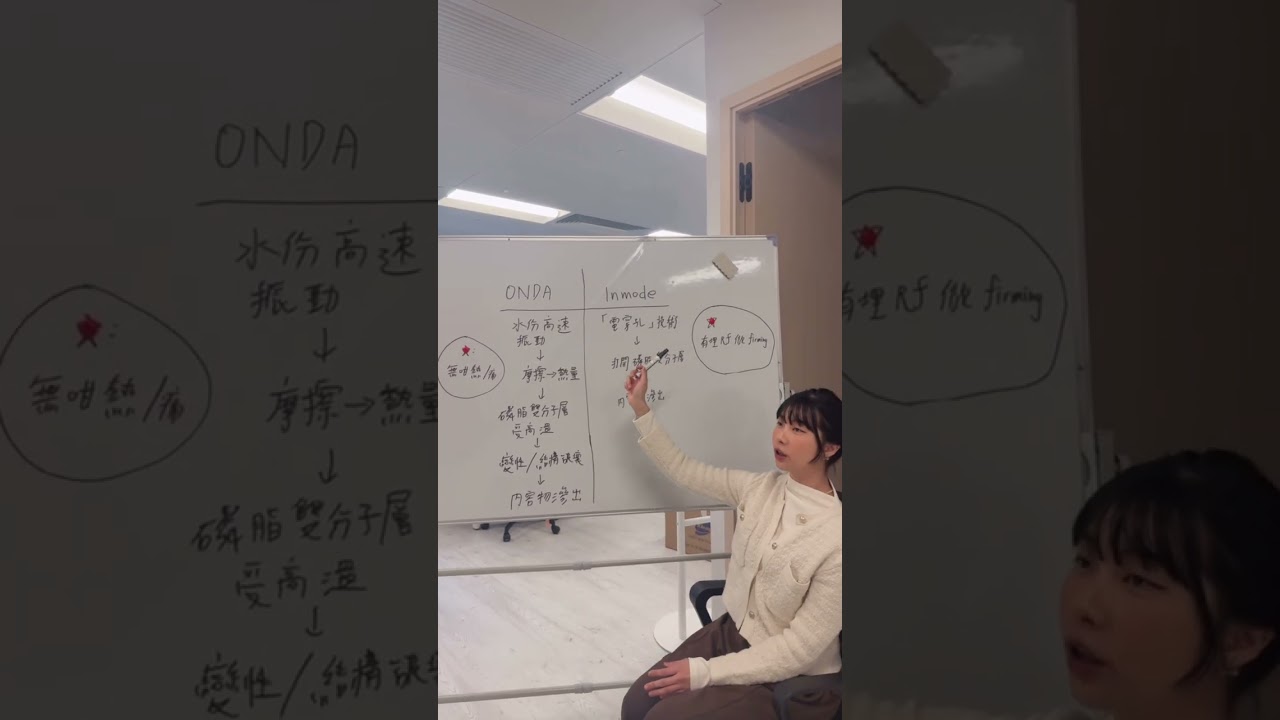 ONDA
Inmode
水份高速
振動
↓
摩擦→熱量
↓
磷脂雙分子層
受高溫
↓
變性/結構破裂
↓
内容物滲出
★:
無咁熱/痛
「電穿孔」技術
↓
分子層
内
滲出
★
有埋 Rf 做 firming